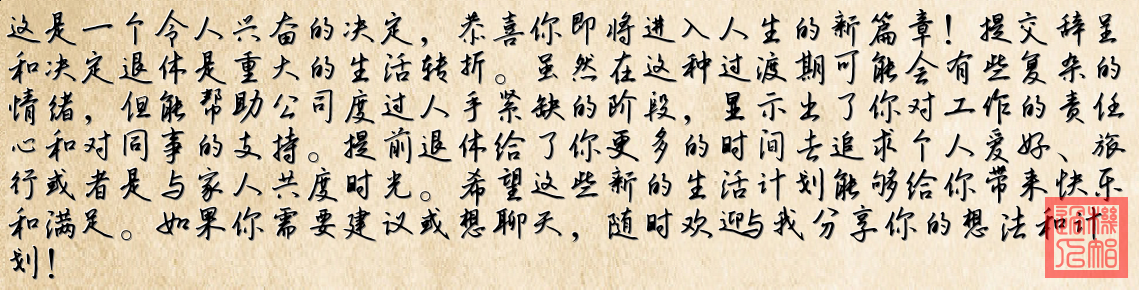 这是一个令人兴奋的决定，恭喜你即将进入人生的新篇章！提交辞呈
和决定退休是重大的生活转折。虽然在这种过渡期可能会有些复杂的
情绪，但能帮助公司度过人手紧缺的阶段，显示出了你对工作的责任
心和对同事的支持。提前退休给了你更多的时间去追求个人爱好、旅
行或者是与家人共度时光。希望这些新的生活计划能够给你带来快乐
和满足。如果你需要建议或想聊天，随时欢迎与我分享你的想法和计
划！